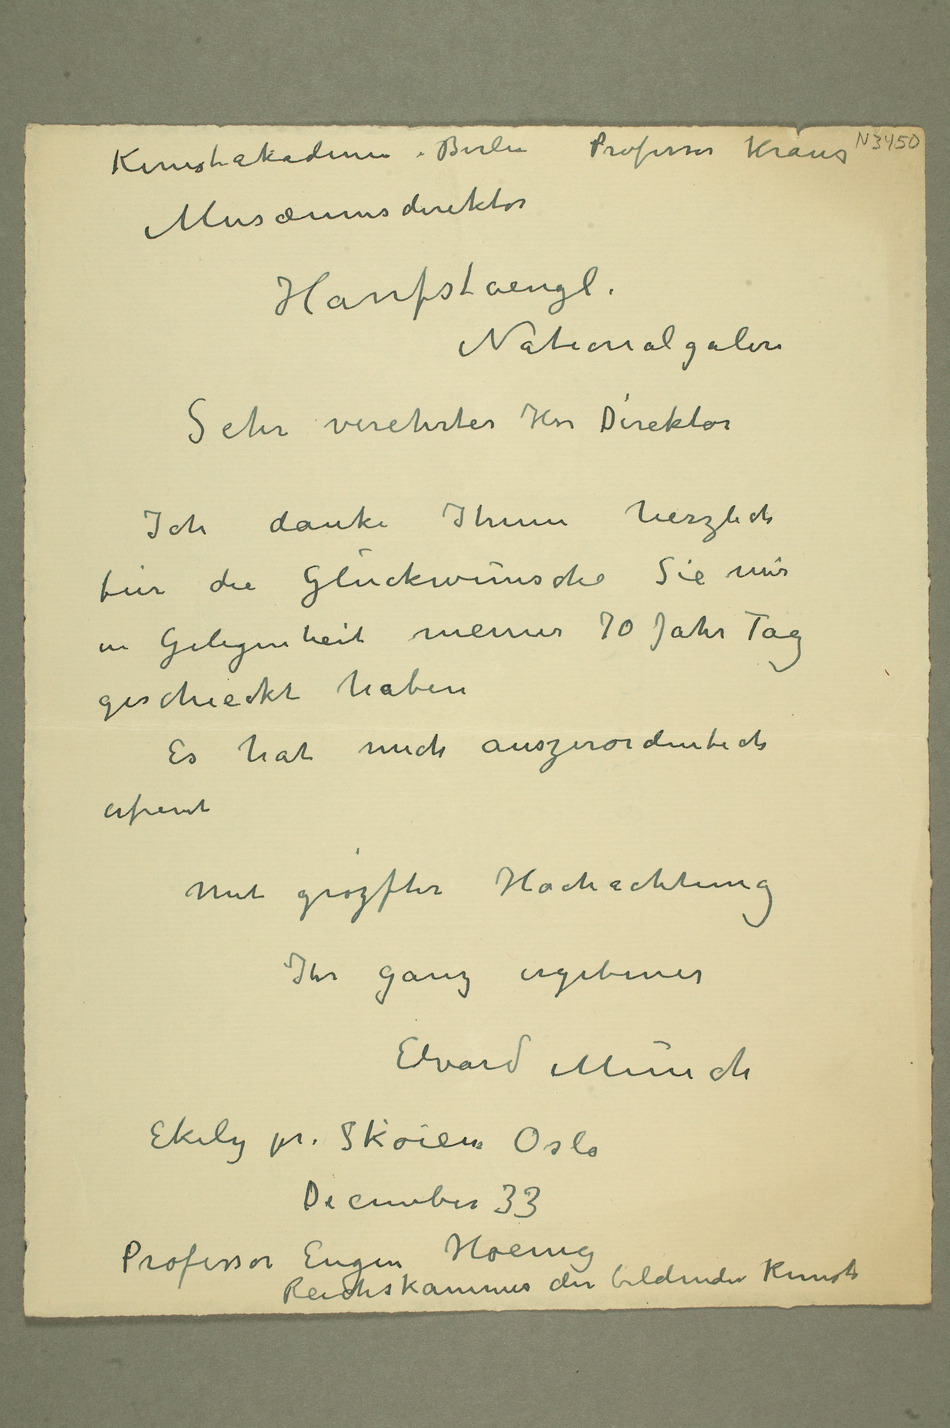 Kunstakademie . Berlin Professor Kraus N3450
Musæumsdirektor
Hanfstaengl.
Nationalgaleri
Sehr verehrter Herr Direktor
Ich danke Ihnen herzlich
für die Glückwünsche Sie mir
in Gelegenheit meines 70 Jahr Tag
geschieckt haben
Es hat mich auszerordentlich
erfreut
Mit grözster Hochachtung
Ihr ganz ergebener
Edvard Munch
Ekely pr. Skøien Oslo
December 33
Professor Eugen Hoenig
Reichskammer der bildenden Kunst